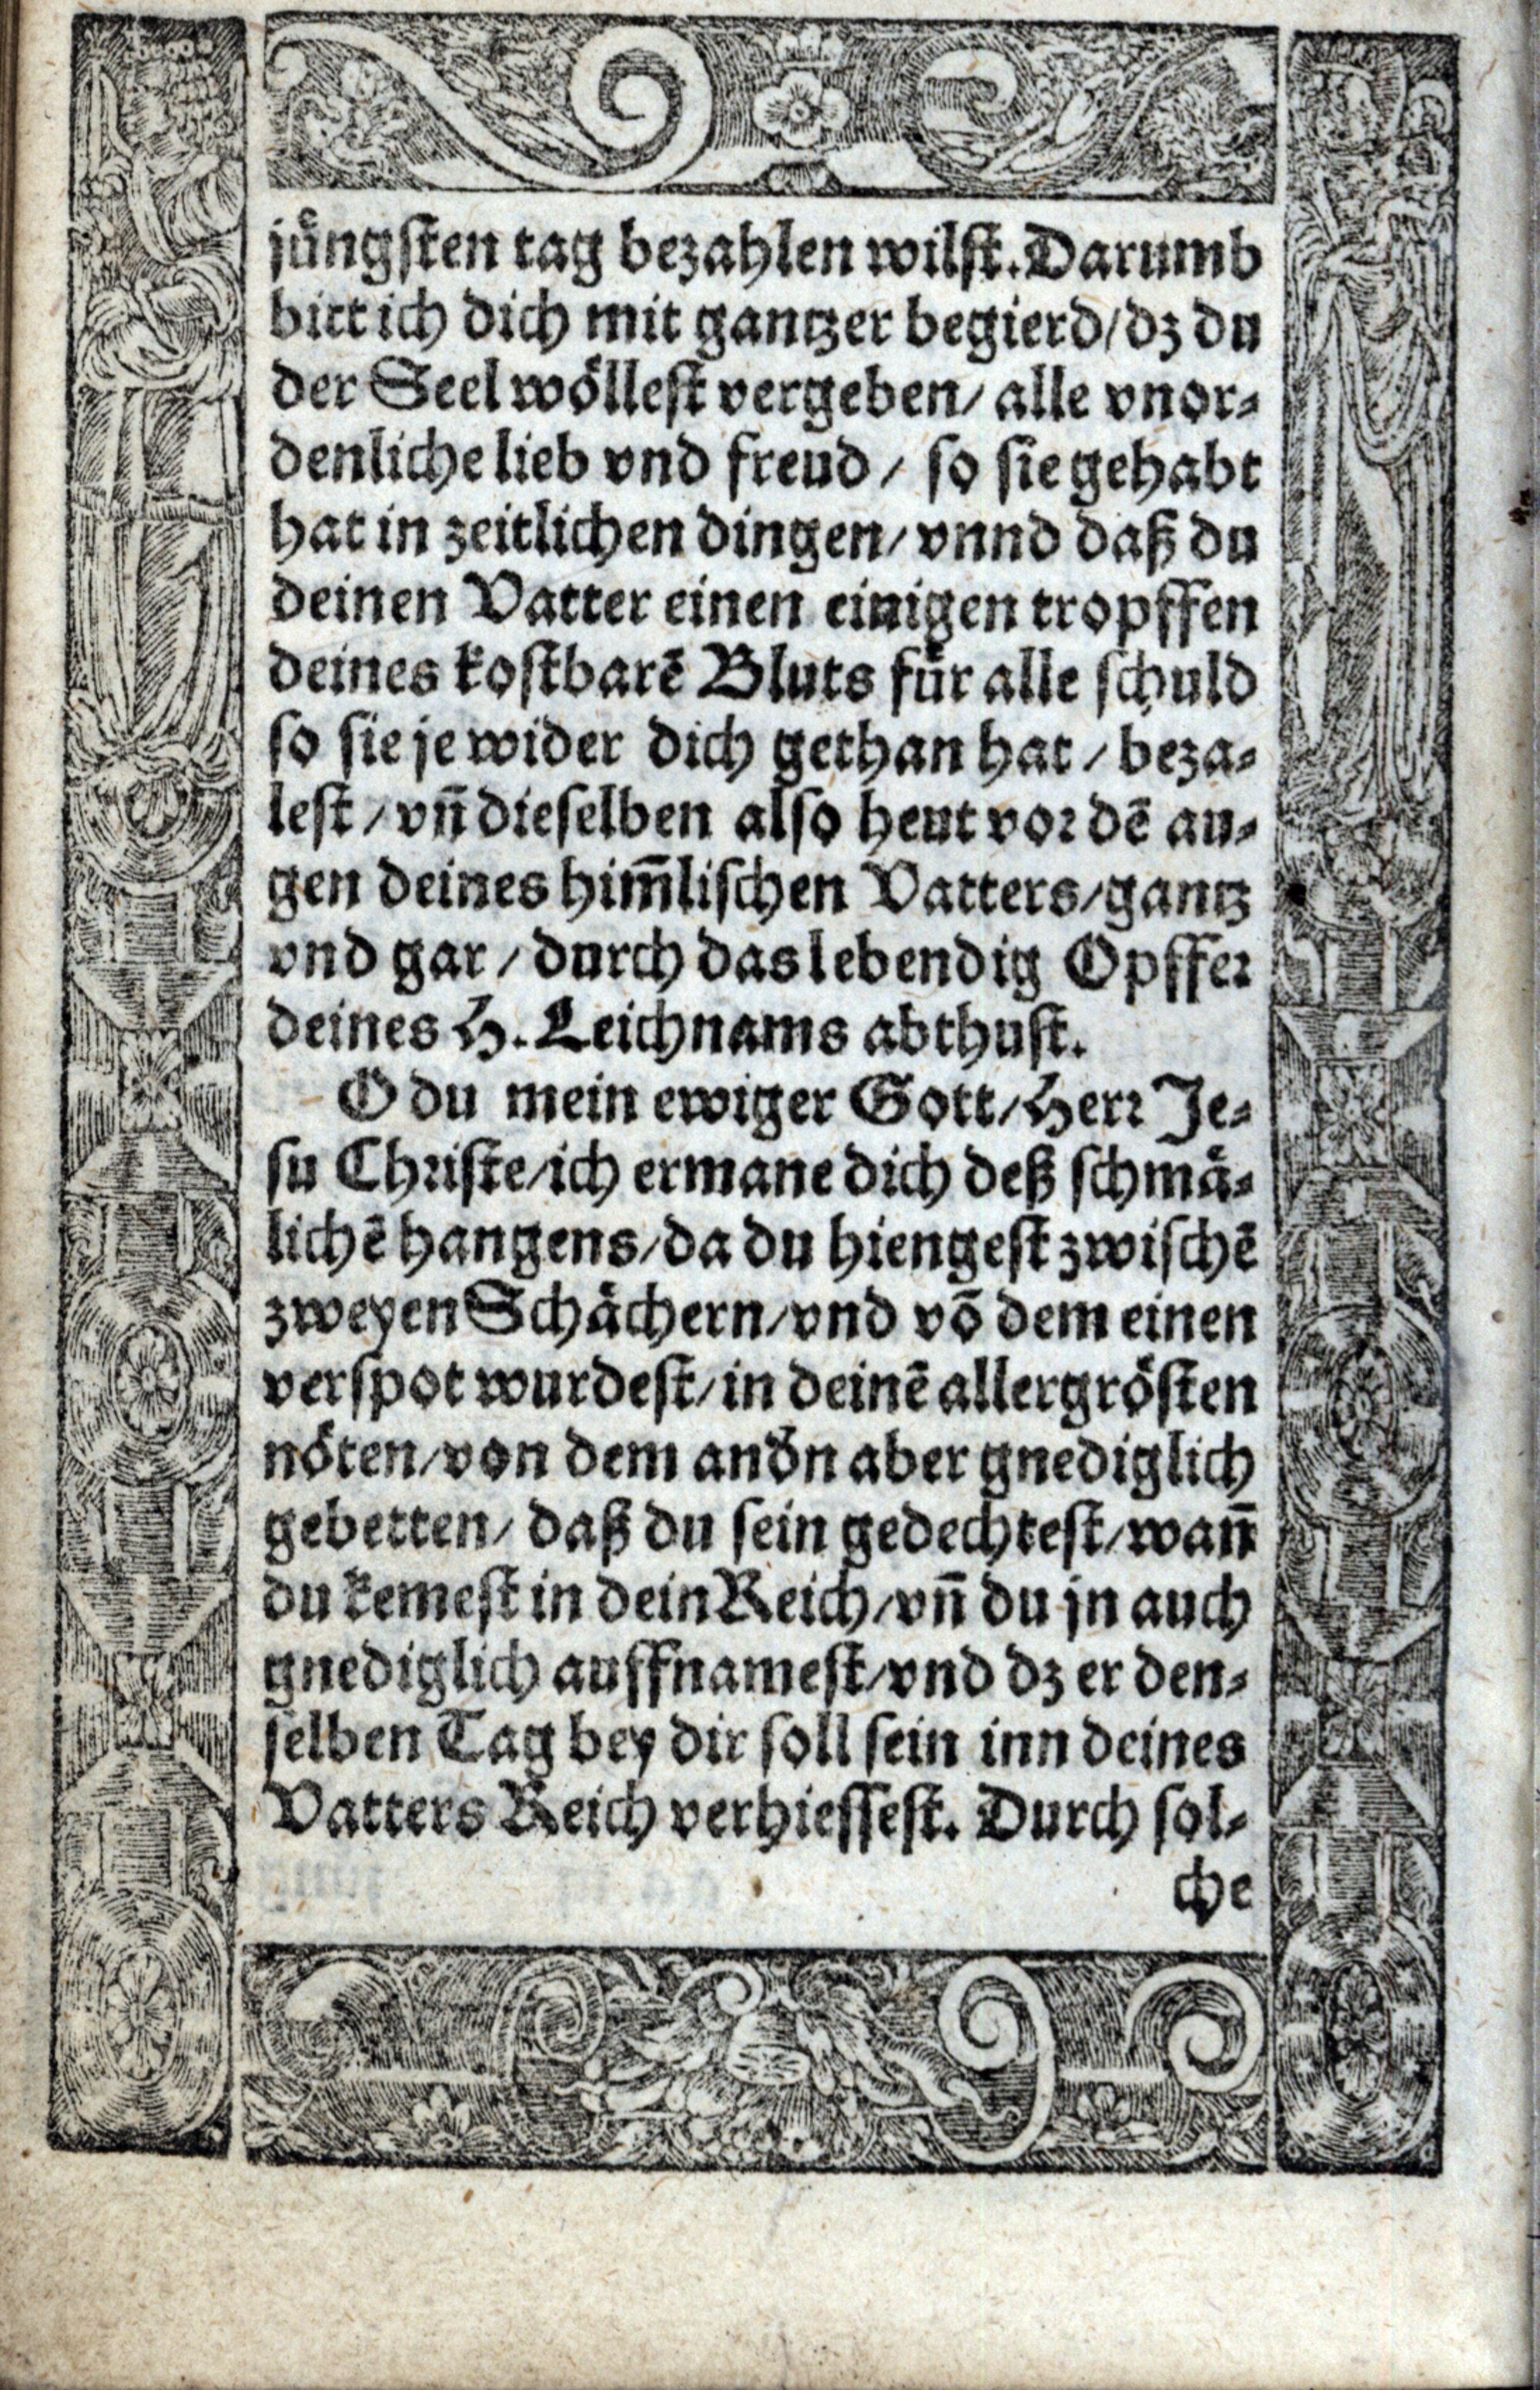 jüngſten tag bezahlen wilſt. Darumb
bitt ich dich mit gantzer begierd/ dz du
der Seel wöllest vergeben/ alle vnor⸗
denliche lieb vnd freud / ſo ſie gehabt
hat in zeitlichen dingen/ vnnd daß du
deinen Vatter einen einigen tropffen
deines koſtbarē Bluts für alle ſchuld
ſo ſie je wider dich gethan hat / beza⸗
leſt / vn̄ dieſelben alſo heut vor dē au⸗
gen deines him̄liſchen Vatters/ gantz
vnd gar / durch das lebendig Opffer
deines H. Leichnams abthuſt.
O du mein ewiger Gott/ Herr Je⸗
ſu Chriſte/ ich ermane dich deß ſchmä⸗
lichē hangens/ da du hiengeſt zwiſchē
zweyen Schächern/ vnd vō dem einen
verſpot wurdeſt/ in deinē allergröſten
nöten/ von dem andn̄ aber gnediglich
gebetten/ daß du ſein gedechteſt/ wan̄
du kemeſt in dein Reich/ vn̄ du jn auch
gnediglich auffnameſt/ vnd dz er den⸗
ſelben Tag bey dir ſoll ſein inn deines
Vatters Reich verhieſſeſt. Durch ſol⸗
che